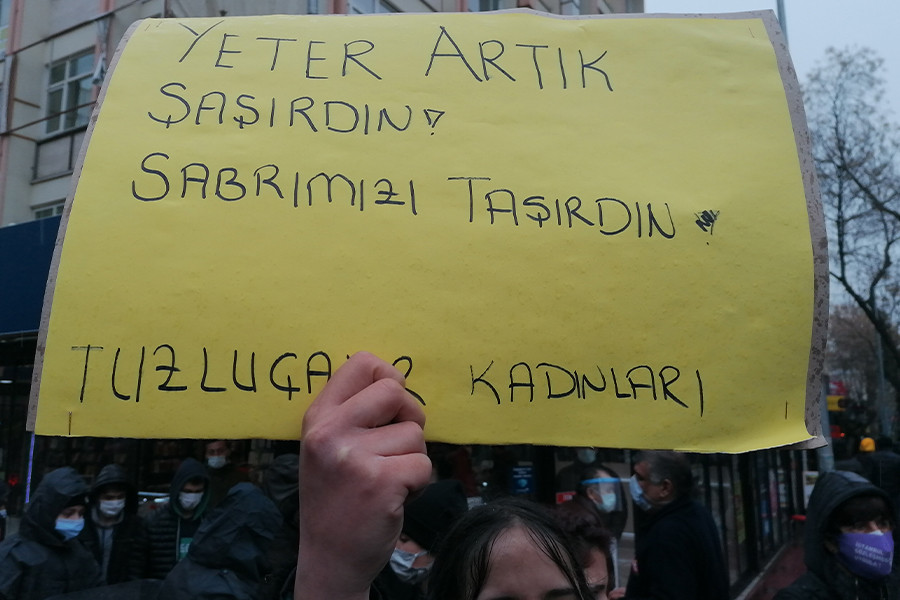 YETER ARTIK
ŞAŞIRDIN?
SABRIMIZI TAŞIRDIN
KADINLARI